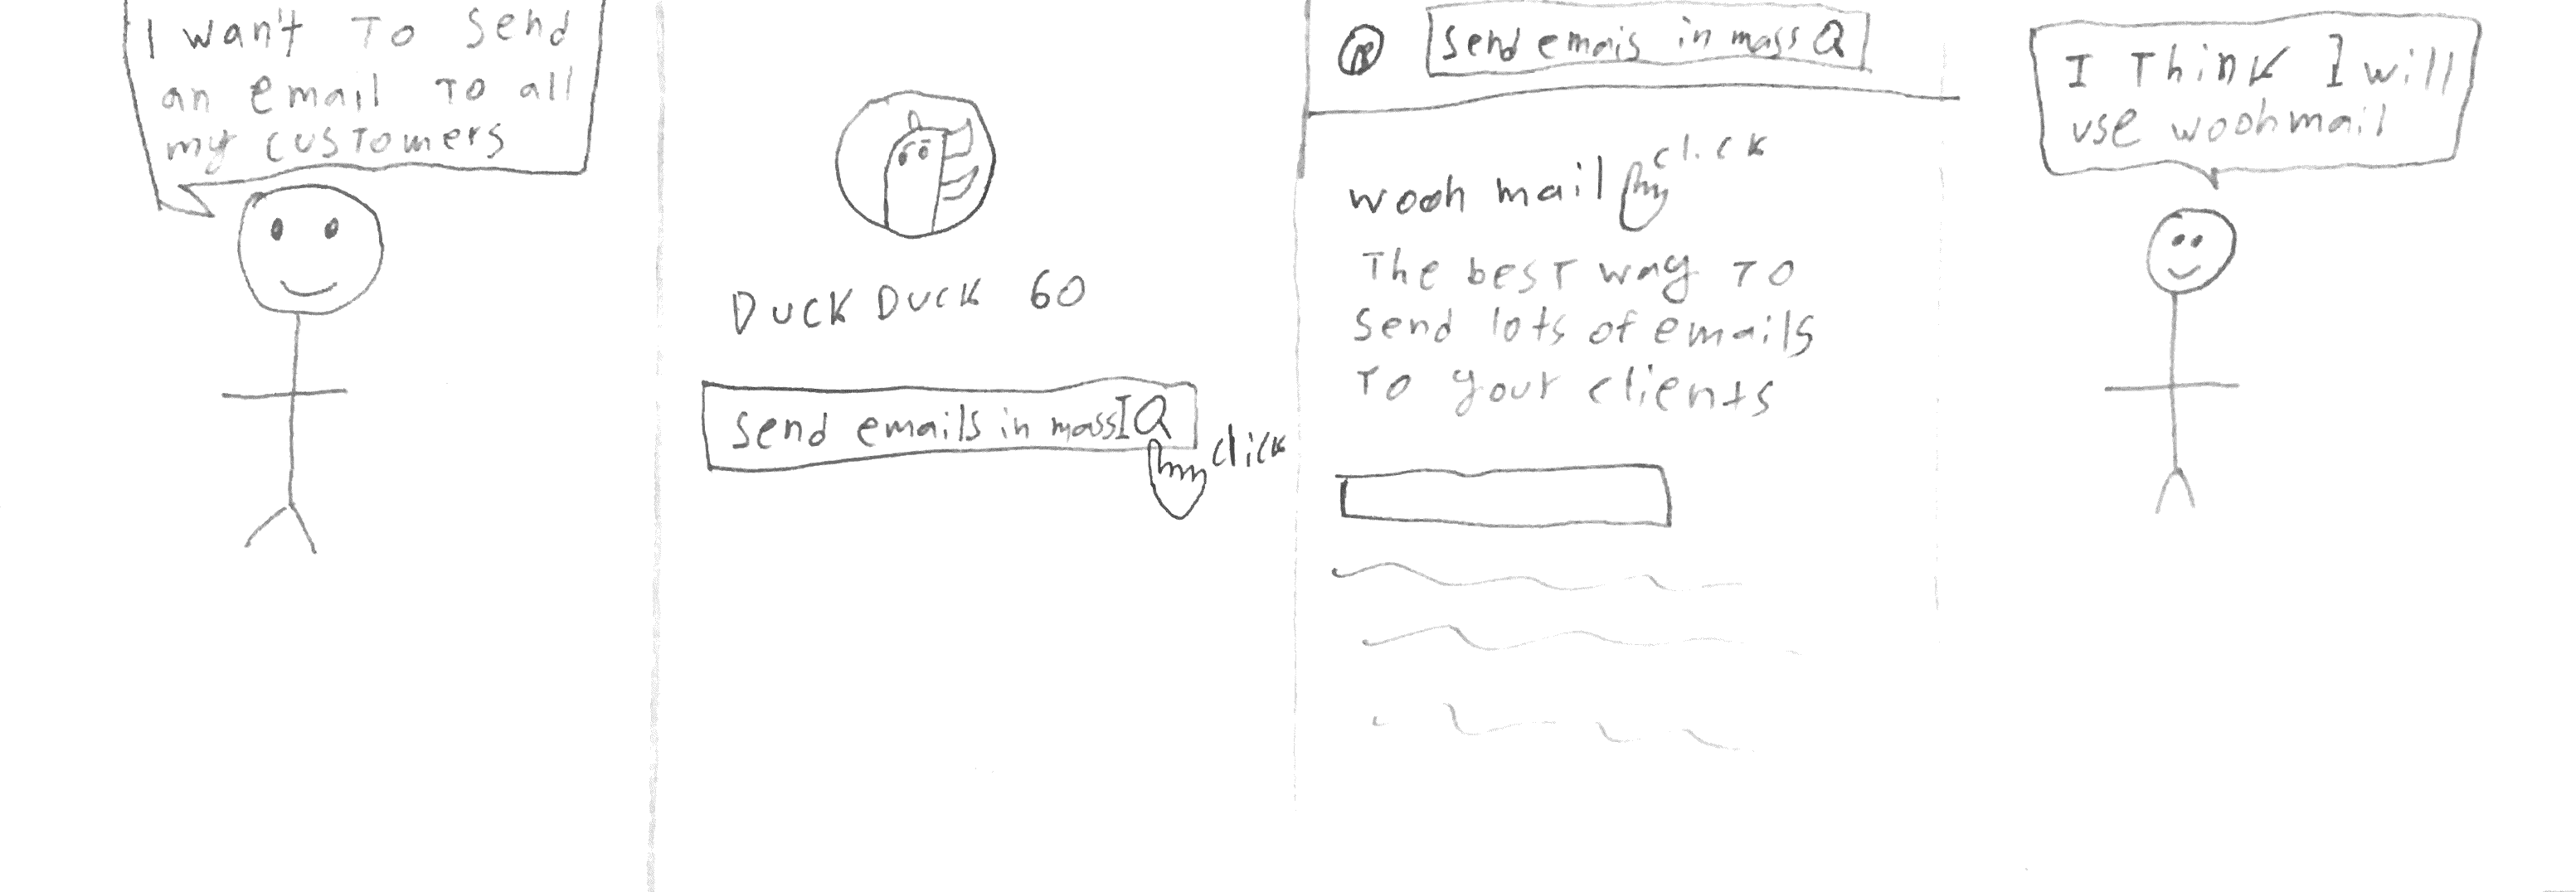 I want to send
an email to all
my customers
DUCK DUCK GO
send emails in mass
click
send emais in mass
wooh mail
click
The best way to
send lots of emails
to your clients
I Think I will
use woohmail